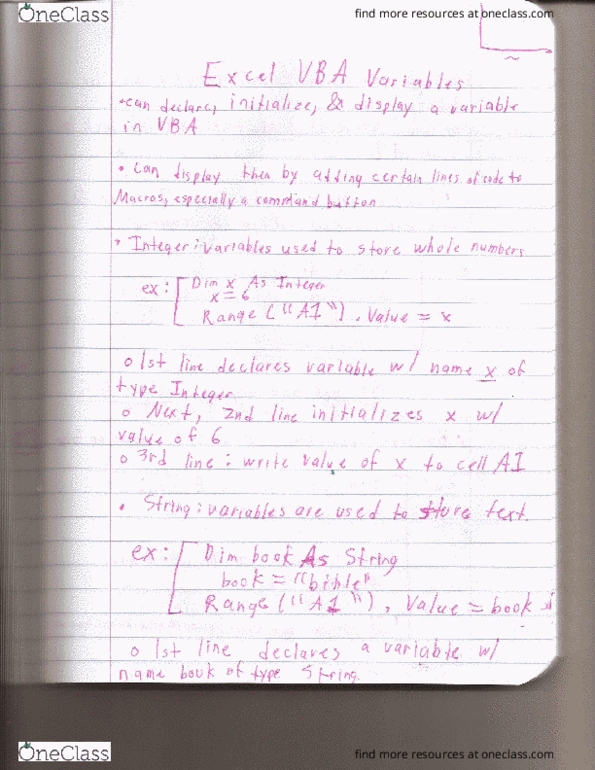 OneClass
find more resources at oneclass.com
Excel VBA Variables
•can declare, initialize, & display a variable
in VBA
• Can display then by adding certain lines of code to
Macros, especially a command button
• Integer: variables used to store whole numbers
ex: Dim x As Integer
x = 6
Range ("A1"). Value = x
o 1st line declares variable w/ name x of
type Integer
o Next, 2nd line initializes x w/
value of 6
o 3rd line: write value of x to cell A1
• String: variables are used to store text.
ex: Dim book As String
book = "bible"
Range ("A1"). Value = book
o 1st line declares a variable w/
name book of type String.
OneClass
find more resources at oneclass.com